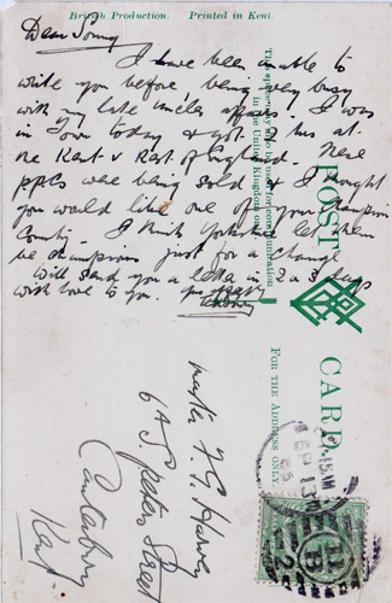 British Production. Printed in Kent.
Dear Sonny
I have been unable to
write you before, being very busy
with my late uncles affairs. I was
in Town today & got this at
the Kent v Rest of England. These
ppcs were being sold & I thought
you would like one of your champion
County. I think Yorkshire let them
be champions just for a change
Will send you a letter in 2 or 3 days
with love to you.
This space may also be used for communication
in the United Kingdom only.
POST CARD.
FOR THE ADDRESS ONLY.
Master F. G. Harvey
6A St Peters Street
Canterbury
Kent
SP 13
B
2